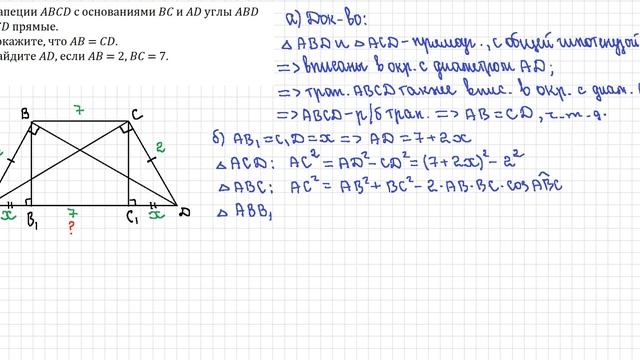 апеции ABCD с основаниями BC и AD углы ABD
CD прямые.
окажите, что AB = CD.
айдите AD, если AB = 2, BC = 7.
а) Док-во:
△ABD и △ACD-прямоуг., с общей гипотенузой
=> вписаны в окр. с диаметром AD;
=> трап. ABCD также впис. в окр. с диам.
=> ABCD-р/б трап. => AB=CD, ч.т.д.
б) AB₁=C₁D=x => AD=7+2x
△ACD: AC²=AD²-CD²=(7+2x)²-2²
△ABC: AC²=AB²+BC²-2·AB·BC·cosABC
△ABB₁
B 7 C
2
x B₁ 7 C₁ x D
?